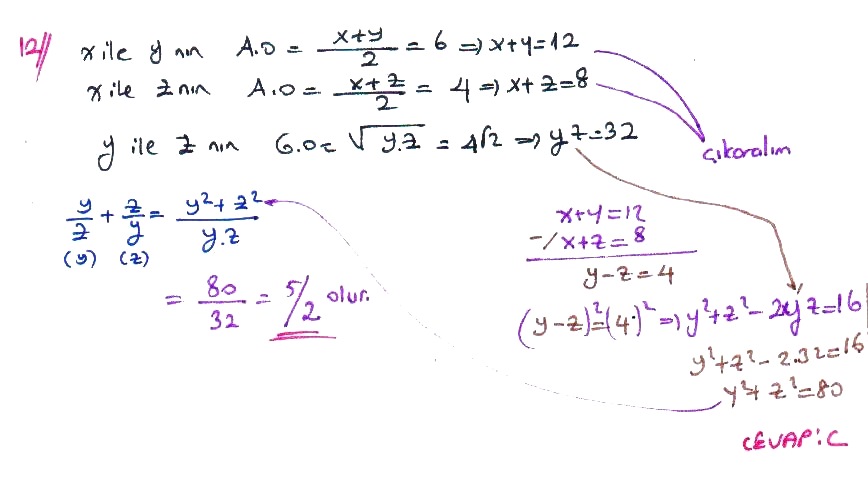 12// x ile y nin A.O = x+y/2 = 6 ⇒ x+y=12
x ile z nin A.O = x+z/2 = 4 ⇒ x+z=8
y ile z nin G.O = √y.z = 4√2 ⇒ yz=32
çıkaralım
y/z + z/y = y²+z²/y.z
(y) (z)
= 80/32 = 5/2 olur.
x+y=12
-/ x+z=8
y-z=4
(y-z)²=(4)² ⇒ y²+z²-2yz=16
y²+z²-2.32=16
y²+z²=80
CEVAP:C